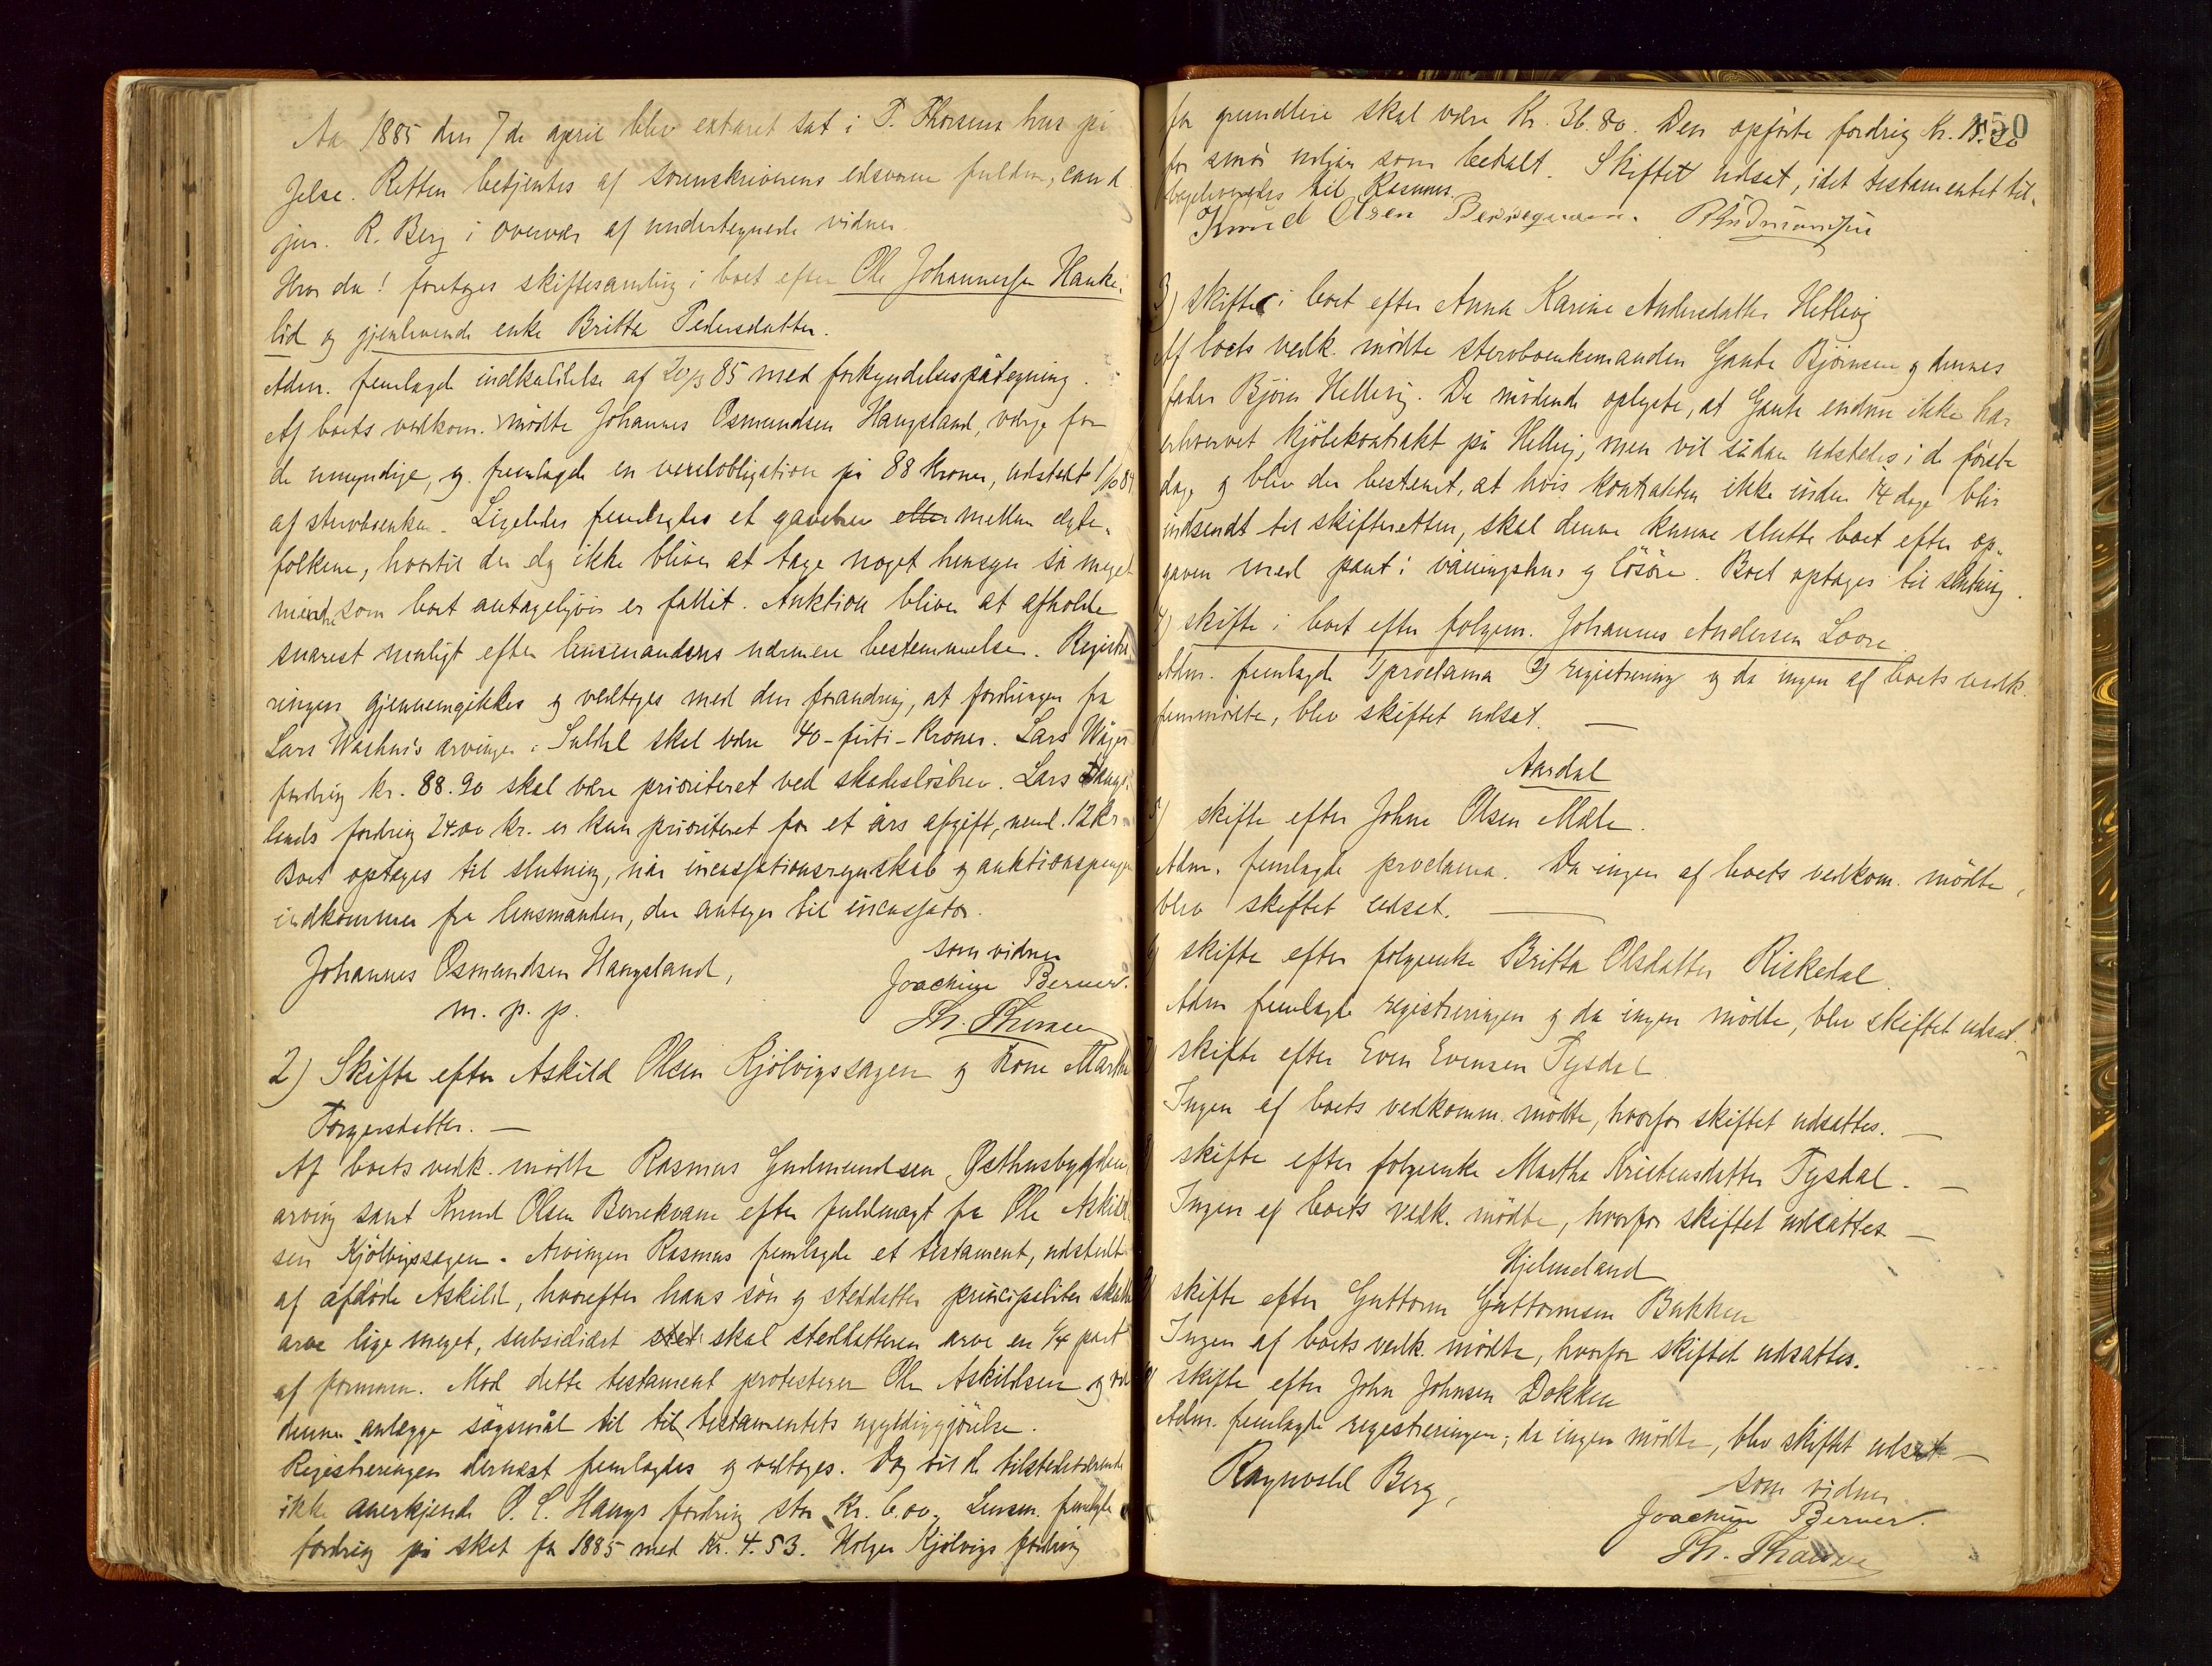 Aar 1885 den 7de april blev extraret sat i T. Thorsens hus på
Jelse. Retten betjentes af sorenskriverens edsvorne fuldm, cand.
jur. R. Berg i overvær af undertegnede vidner.
Hvor da! foretoges skiftesamling i boet efter Ole Johannessen Hauke-
lid og gjenlevende enke Britta Pedersdatter.
Adm. fremlagde indkaldelse af 20/3 85 med forkyndelsespåtegning.
Af boets vedkom. mödte Johannes Osmundsen Haugsland, værge for
de umyndige, og fremlagde en vexelobligation på 88 Kroner, udstedt 1/10 84
af stervboenken. Ligeledes fremlagdes et gavebrev eller mellem ægte-
folkene, hvortil der dog ikke bliver at tage noget hensyn så meget
mindre som boet antageligvis er fallit. Auktion bliver at afholde
snarest muligt efter lensmandens nærmere bestemmelse. Registre-
ringen gjennemgikkes og vedtoges med den forandring, at fordringen fra
Lars arvinger i Suldal skal være 40-firti-Kroner. Lars
fordring kr. 88.90 skal være prioriteret ved skadeslösbrev. Lars Haugs-
lands fordring 24.00 kr. er kun prioriteret for et års afgift, nemd. 12 kr.
Boet optages til slutning, når incassationsregnskab og auktionspenge
indkommer fra lensmanden, der antages til incassator.
Johannes Osmundsen Haugsland,
m. p. p.
som vidner
Joachim Berner.
Th. Thorsen
2) Skifte efter Askild Olsen Kjölvigssagen og kone Martha
Torgersdatter. —
Af boets vedk. mödte Rasmus Gudmundsen Østhusbygden,
arving samt Knud Olsen Berrekvam efter fuldmagt fra Ole Askild-
sen Kjölvigssagen. Arvingen Rasmus fremlagde et testament, udstedt
af afdöde Askild, hvorefter hans sön og steddatter principaliter skulde
arve lige meget, subsidiært sted skal steddatteren arve en 1/4 part
af formuen. Mod dette testament protesterer Ole Askildsen og vil
denne anlægge sögsmål til til testamentets ugyldiggjörelse.
Registreringen dernæst fremlagdes og vedtoges. Dog vil de tilstedeværende
ikke anerkjende O. L. Haugs fordring stor kr. 6.00. Lensm. fremlagde
fordring på skat for 1885 med Kr. 4.53. Holger Kjölvigs fordring
150
for grundleie skal være Kr. 36.80. Den opförte fordring Kr.
for smör udgår som betalt. Skiftet udsat, idet testamentet til-
bageleveredes til Rasmus.
Knud Olsen Berrequam. RGudmundsen
3) Skifte i boet efter Anna Karine Andersdatter Hetlevig
Af boets vedk. mödte stervboenkemanden Gaute Björnsen og dennes
fader Björn Hetlevig. De mödende oplyste, at Gaute endnu ikke har
erhvervet kjöbekontrakt på Hetlevig, men vil sådan udstedes i de förste
dage og blev der bestemt, at hvis kontrakten ikke inden 14 dage blir
indsendt til skifteretten, skal denne kunne slutte boet efter op-
gaven med pant i våningshus og lösöre. Boet optages til slutning.
4) skifte i boet efter folgem. Johannes Andersen Loore.
Adm. fremlagde 1) proclama 2) registrering og da ingen af boets vedk.
fremmödte, blev skiftet udsat. —
Aardal
5) skifte efter Johne Olsen Mæle.
Adm. fremlagde proclama. Da ingen af boets vedkom. mödte,
blev skiftet udsat. —
6) skifte efter folgeenke Britta Olsdatter Riskedal.
Adm fremlagde registreringen og da ingen mödte, blev skiftet udsat. —
7) skifte efter Even Evensen Tysdal
Ingen af boets vedkomm. mödte, hvorfor skiftet udsattes. —
8) skifte efter folgeenke Martha Kristensdatter Tysdal. —
Ingen af boets vedk. mödte, hvorfor skiftet udsattes —
Hjelmeland
9) skifte efter Guttorm Guttormsen Bakken
Ingen af boets vedk. mödte, hvorfor skiftet udsattes.
10) skifte efter John Johnsen Dokken
Adm. fremlagde registreringen; da ingen mödte, blev skiftet udsat —
Ragnvald Berg,
som vidner
Joachim Berner.
Th. Thorsen